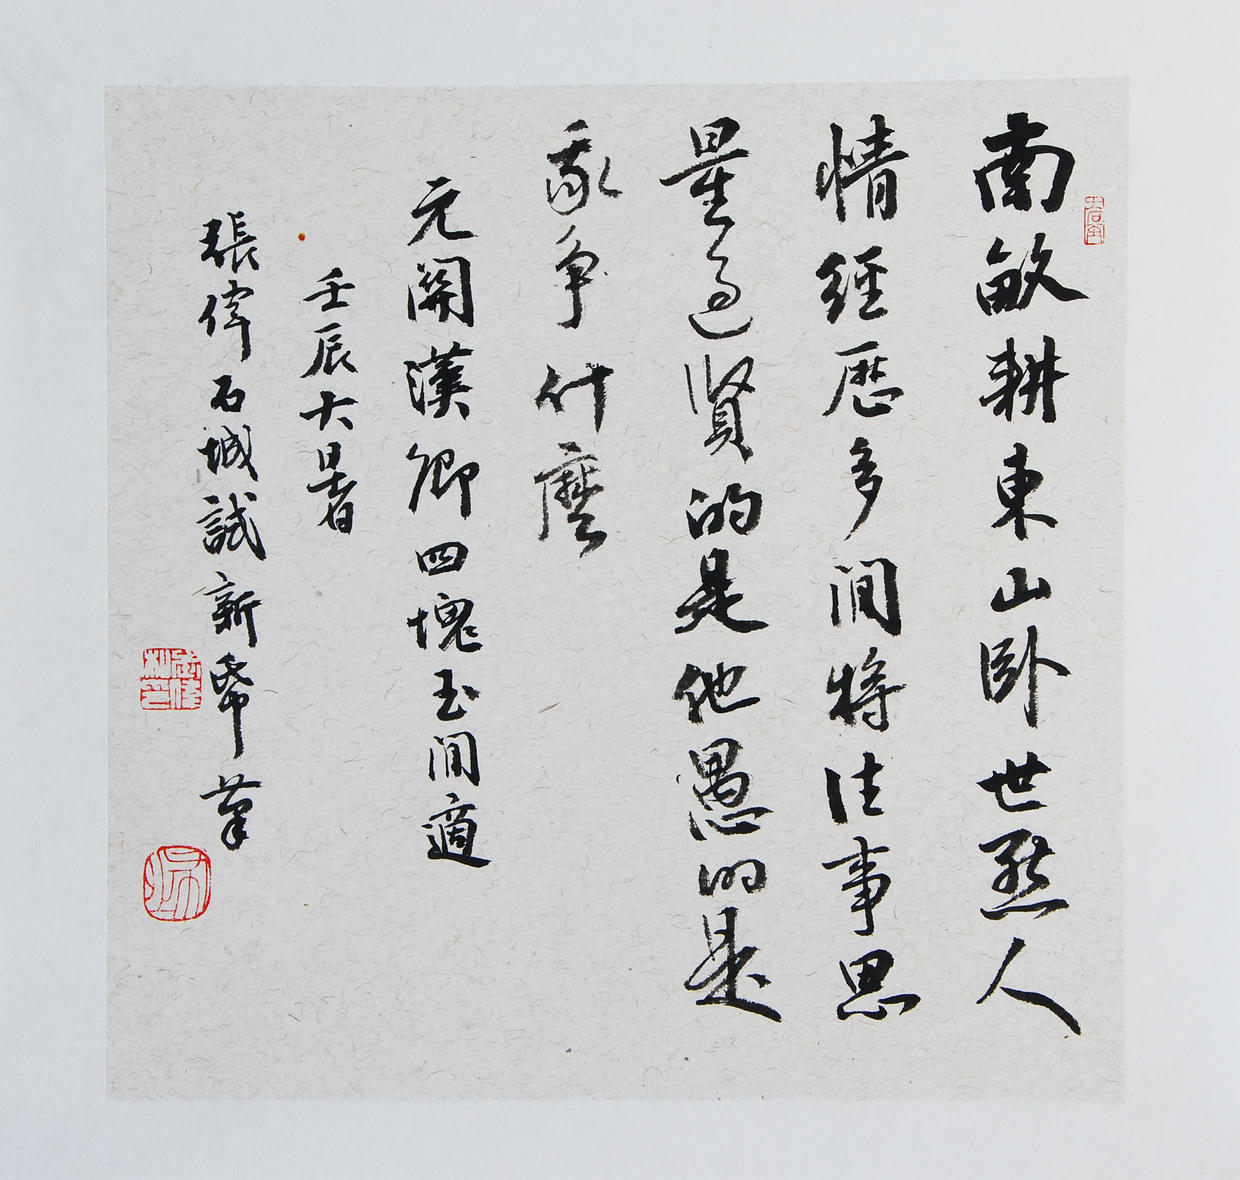 南畝耕東山卧世態人
情經歷多閒將往事思
量過賢的是他愚的是
我争什麼
元關漢卿四塊玉閒適
壬辰大暑
張偉石城試新帋筆